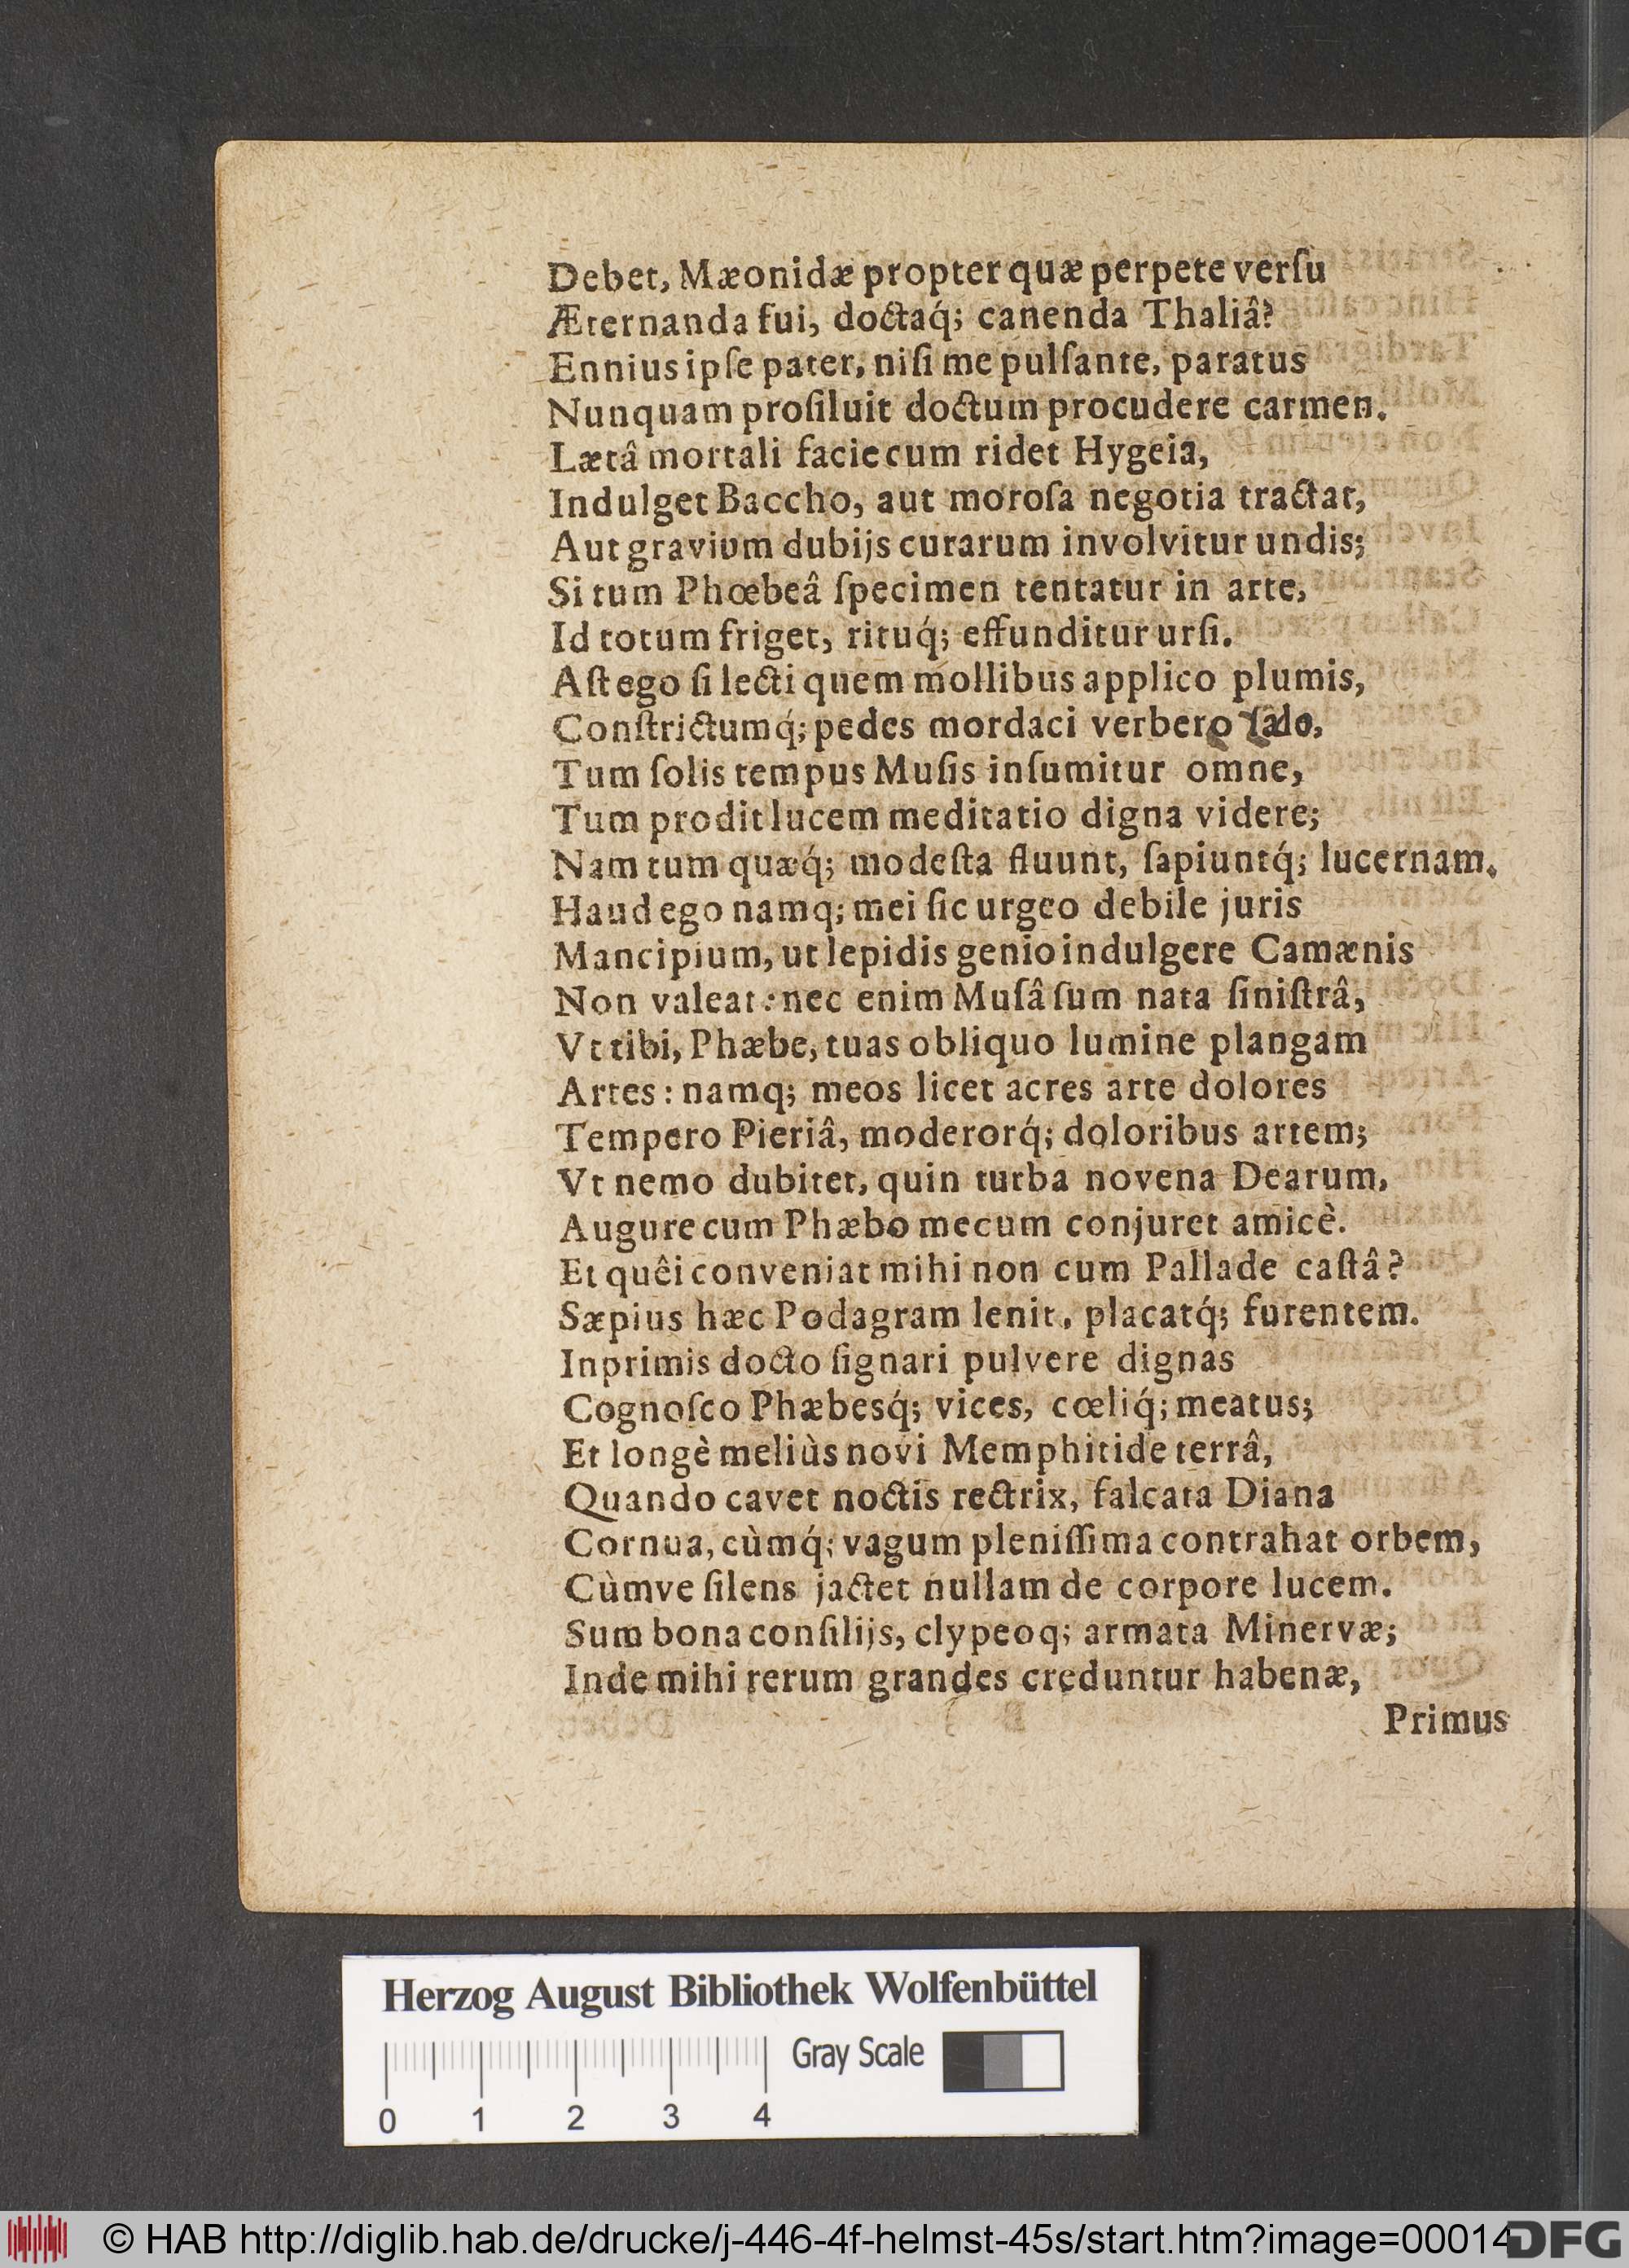 Debet, Mæonidæ propter quæ perpete verſu
Æternanda fui, doctaq́; canenda Thaliâ?
Ennius ipſe pater, niſi me pulſante, paratus
Nunquam proſiluit doctum procudere carmen.
Lætâ mortali facie cum ridet Hygeia,
Indulget Baccho, aut moroſa negotia tractat,
Aut gravium dubijs curarum involvitur undis;
Si tum Phœbeâ ſpecimen tentatur in arte,
Id totum friget, rituq́; effunditur urſi.
Aſt ego ſi lecti quem mollibus applico plumis,
Conſtrictumq́; pedes mordaci verbero ſalo,
Tum ſolis tempus Muſis inſumitur omne,
Tum prodit lucem meditatio digna videre;
Nam tum quæq́; modeſta fluunt, ſapiuntq́; lucernam.
Haud ego namq; mei ſic urgeo debile juris
Mancipium, ut lepidis genio indulgere Camænis
Non valeat: nec enim Muſâ ſum nata ſiniſtrâ,
Vt tibi, Phæbe, tuas obliquo lumine plangam
Artes: namq; meos licet acres arte dolores
Tempero Pieriâ, moderorq́; doloribus artem;
Vt nemo dubitet, quin turba novena Dearum,
Augure cum Phæbo mecum conjuret amicè.
Et quêi conveniat mihi non cum Pallade caſtâ?
Sæpius hæc Podagram lenit, placatq́; furentem.
Inprimis docto ſignari pulvere dignas
Cognoſco Phæbesq́; vices, cœliq́; meatus;
Et longè meliùs novi Memphitide terrâ,
Quando cavet noctis rectrix, falcata Diana
Cornua, cùmq́; vagum pleniſſima contrahat orbem,
Cùmve ſilens jactet nullam de corpore lucem.
Sum bona conſilijs, clypeoq; armata Minervæ;
Inde mihi rerum grandes creduntur habenæ,
Primus
Herzog August Bibliothek Wolfenbüttel
Gray Scale
0 1 2 3 4
© HAB http://diglib.hab.de/drucke/j-446-4f-helmst-45s/start.htm?image=00014
DFG